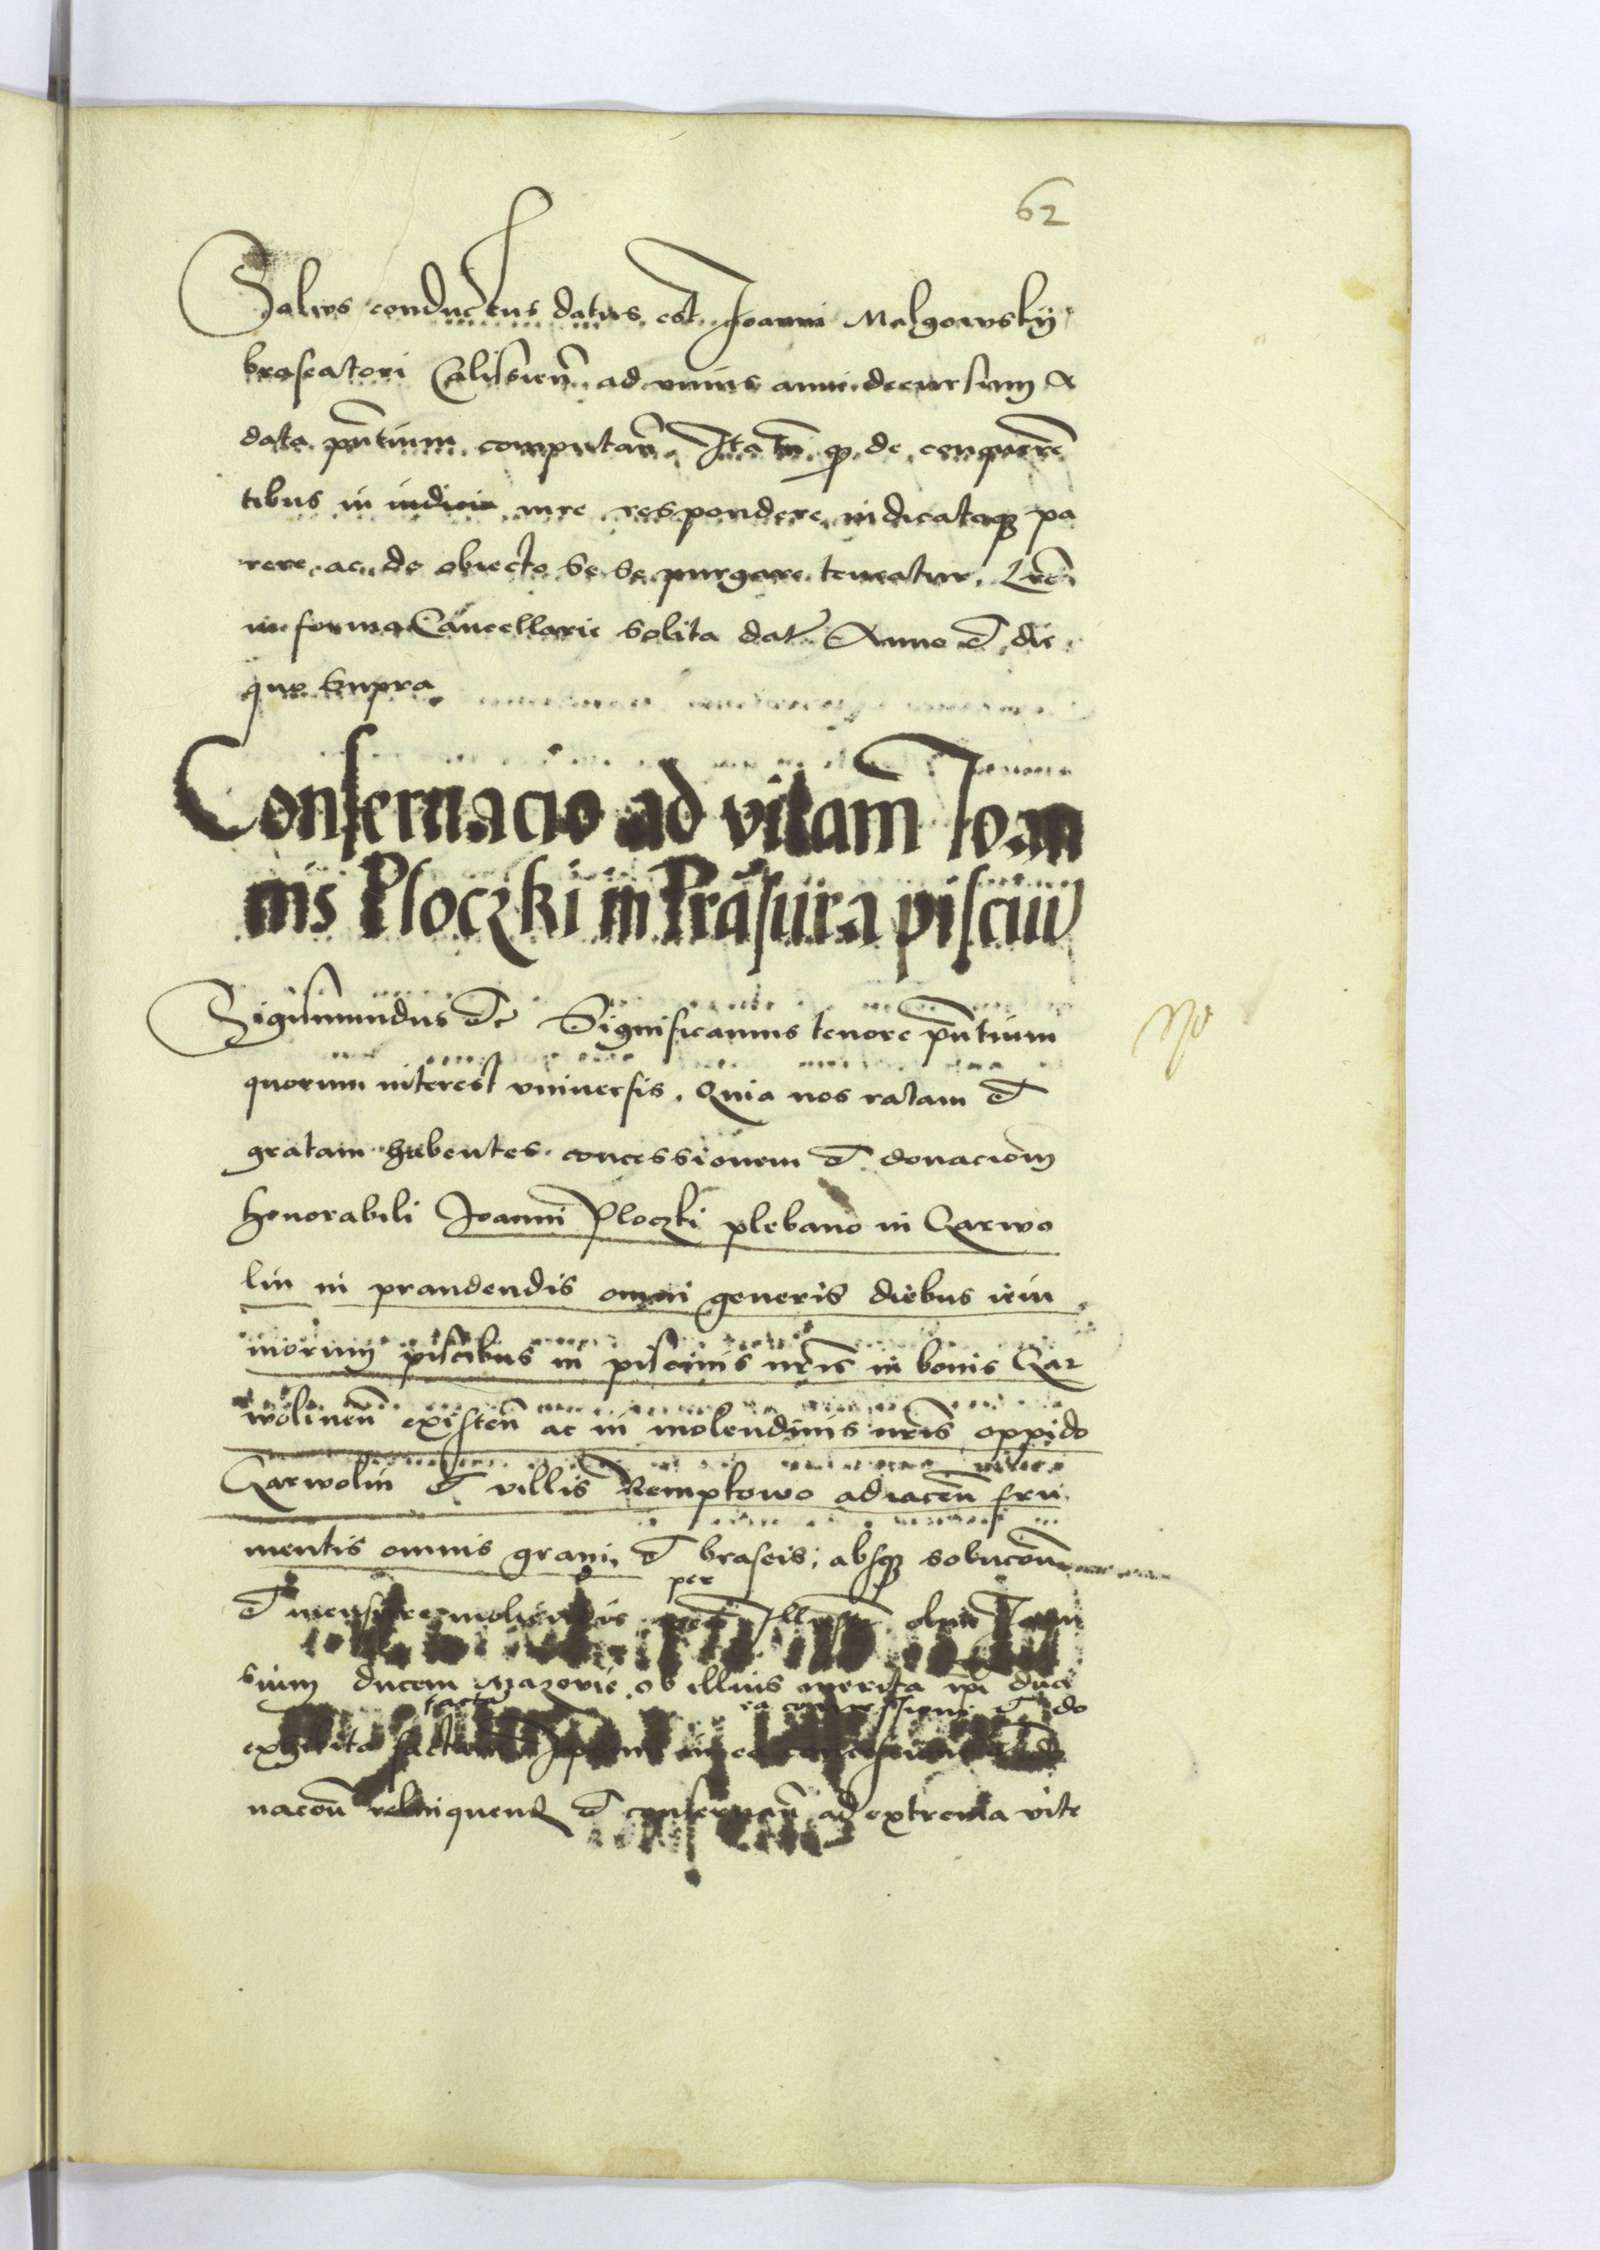 62
Salvus conductus datus est Joanni Malgowskij
braseatori Calisien̄ ad unius anni decursum a
data pn̄tium computan̄. Ita tn̄ qꝫ de conqueren̄
tibus in iudicio iure respondere iudicatoqꝫ pa
rere ac de obiecto se se purgare teneatur. Lrē
in forma Cancellarie solita dat̄ Anno et die
quo supra
Conservacio ad vitam Joan
nis Ploczki in Prāsura pisciū
Sigismundus etc Significamus tenore pn̄tium
quorum interest universis. Quia nos ratam et
gratam habentes concessionem et donaciom̄
honorabili Joanni Ploczki plebano in Garwo
lin in prandendis omni generis diebus ieiu
niorum piscibus in piscinis nr̄is in bonis Gar
wolinen̄ existen̄ ac in molendinis nr̄is oppido
Garwolin et villis Remptowo adiacen̄ fru
mentis omnis grani et braseis, absqꝫ solucōn̄
et mensure moliendis per Illustrem̄ olim Janu
sium ducem Mazovie ob illius merita ipī duci
facta ea concessione et do
exhibita
nacōn̄ relinquend̄ et conservan̄ ad extrema vite